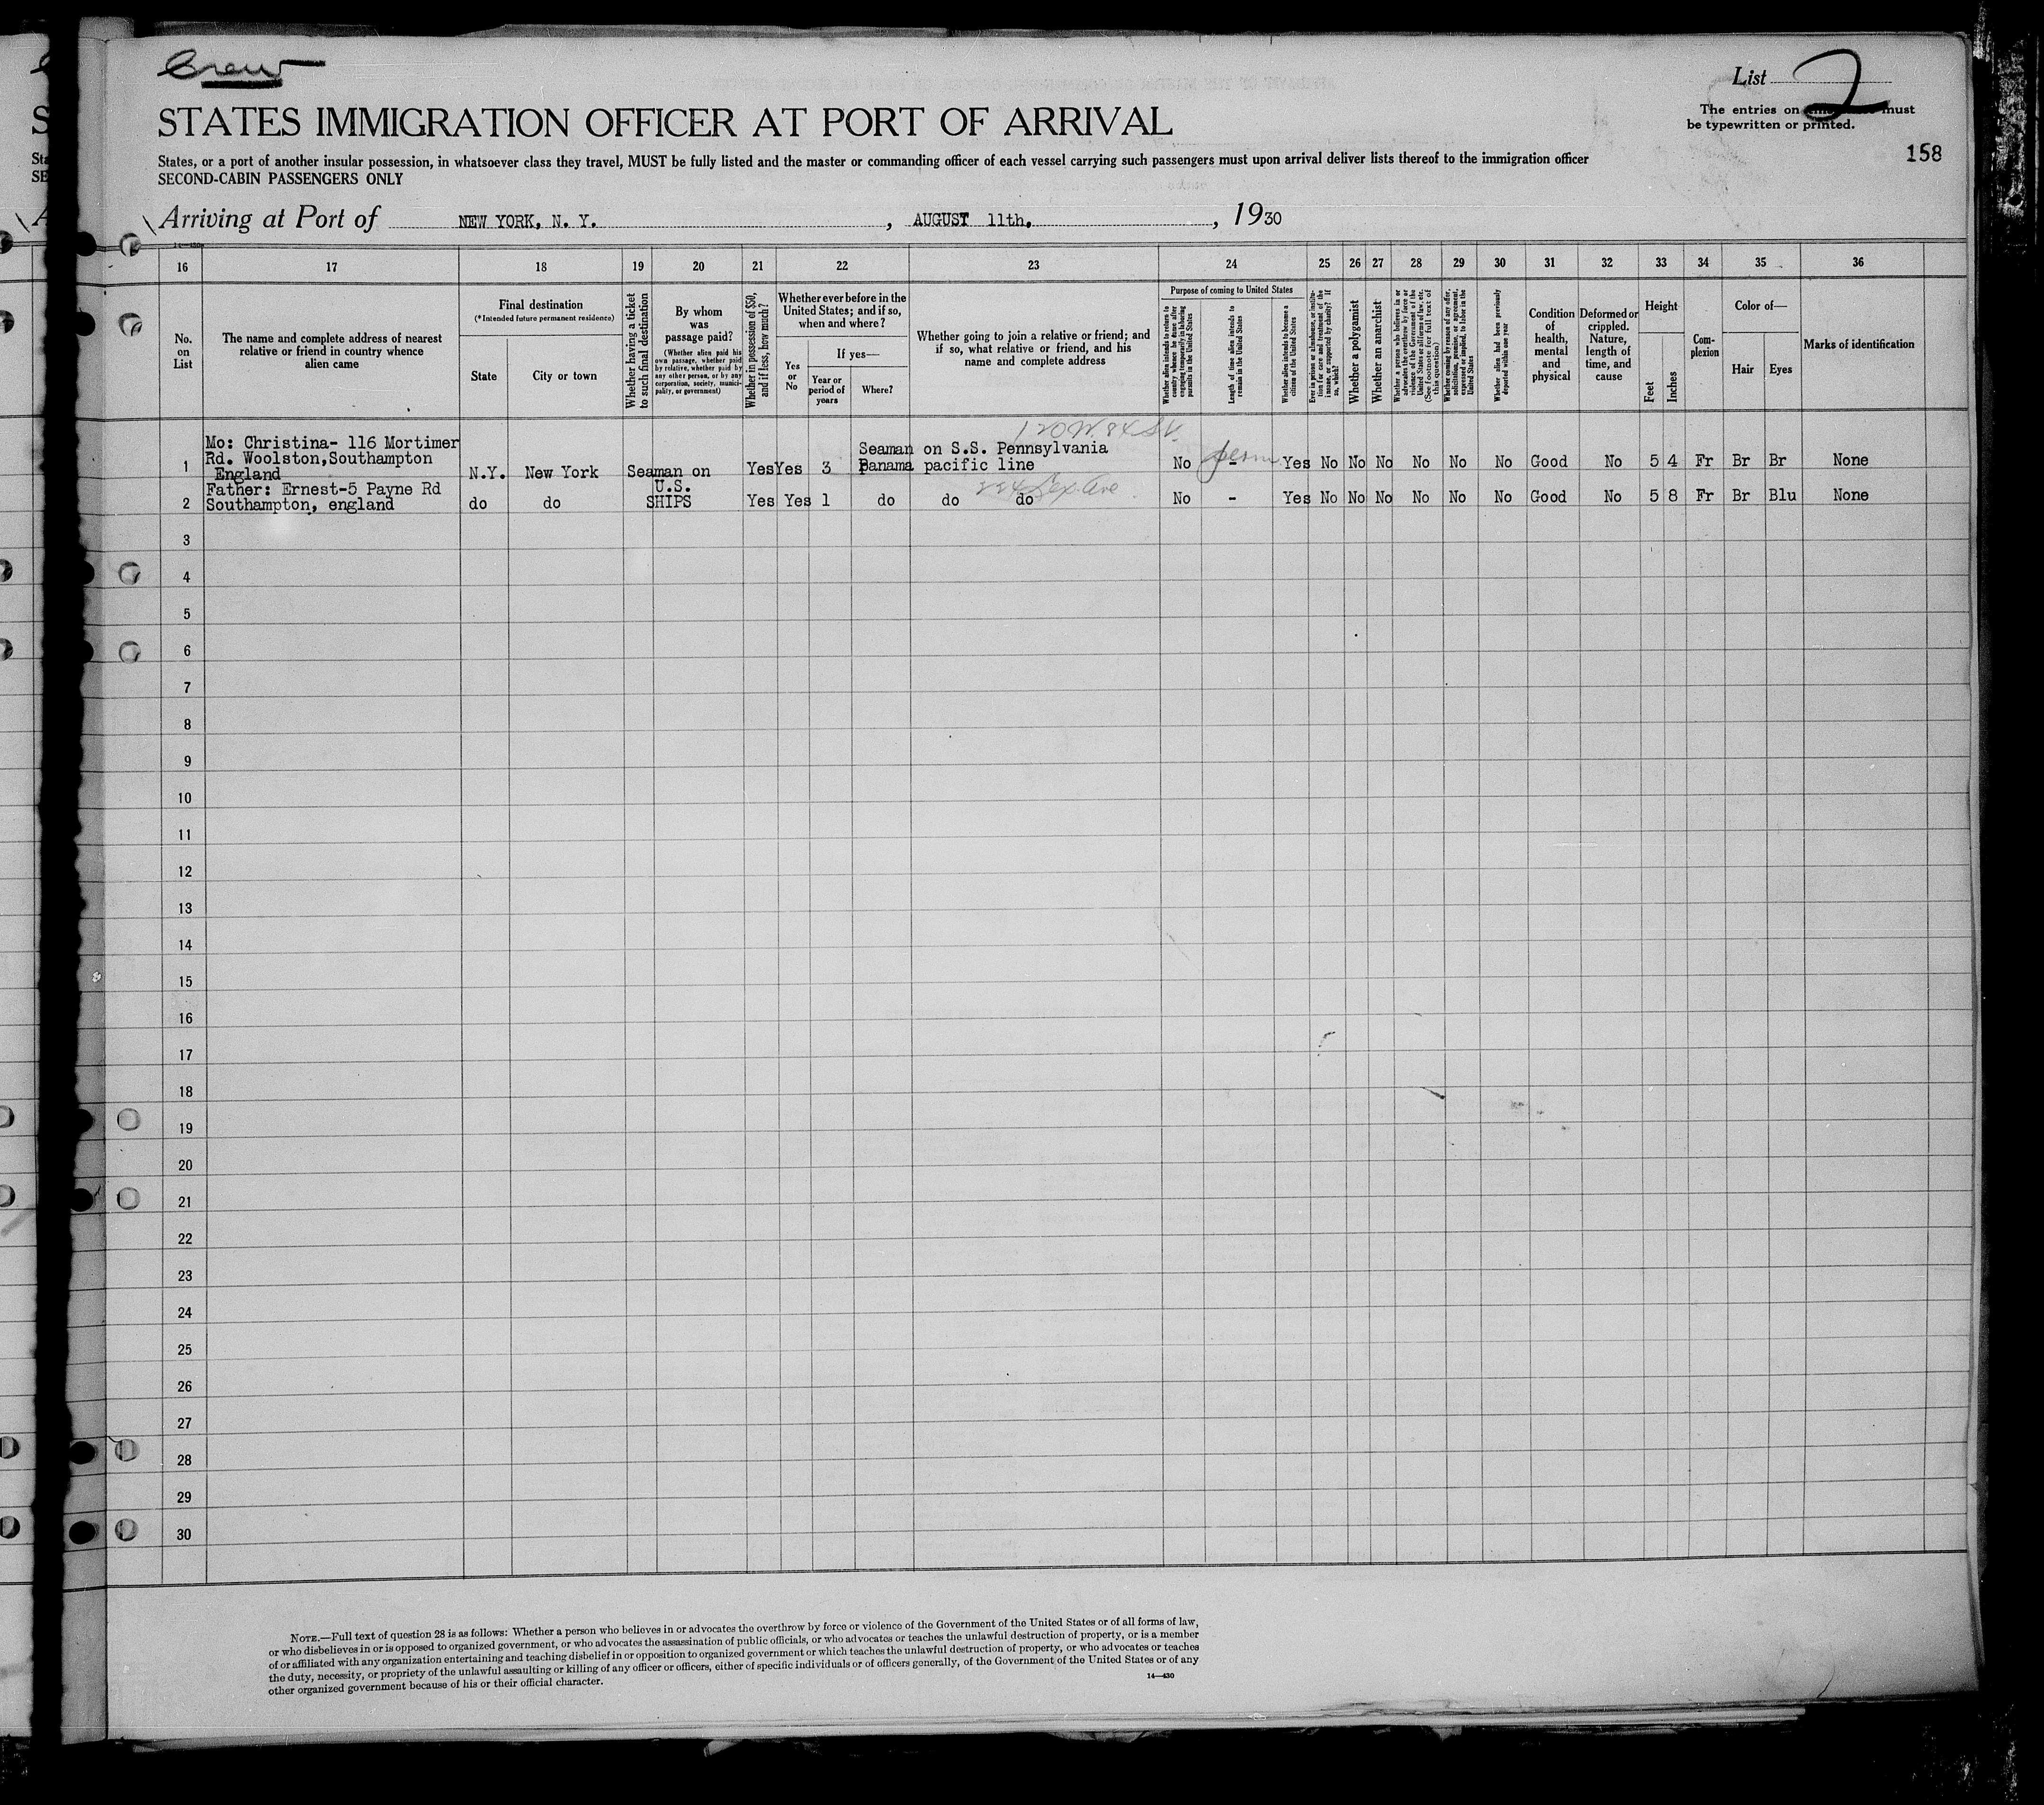 Crew
List 2
STATES IMMIGRATION OFFICER AT PORT OF ARRIVAL
The entries on must
be typewritten or printed.
158
States, or a port of another insular possession, in whatsoever class they travel, MUST be fully listed and the master or commanding officer of each vessel carrying such passengers must upon arrival deliver lists thereof to the immigration officer
SECOND-CABIN PASSENGERS ONLY
Arriving at Port of NEW YORK, N. Y. , AUGUST 11th, , 1930
16 17 18 19 20 21 22 23 24 25 26 27 28 29 30 31 32 33 34 35 36
No.
on
List
The name and complete address of nearest
relative or friend in country whence
alien came
Final destination
(*Intended future permanent residence)
State
City or town
Whether having a ticket
to such final destination
By whom
was
passage paid?
(Whether alien paid his
own passage, whether paid
by relative, whether paid by
any other person, or by any
corporation, society, munici-
pality, or government)
Whether in possession of $50,
and if less, how much?
Whether ever before in the
United States; and if so,
when and where?
Yes
or
No
If yes—
Year or
period of
years
Where?
Whether going to join a relative or friend; and
if so, what relative or friend, and his
name and complete address
Purpose of coming to United States
Whether alien intends to return to
country whence he came after
engaging temporarily in laboring
pursuits in the United States
Length of time alien intends to
remain in the United States
Whether alien intends to become a
citizen of the United States
Ever in prison or almshouse, or institu-
tion for care and treatment of the
insane, or supported by charity? If
so, which?
Whether a polygamist
Whether an anarchist
Whether a person who believes in or
advocates the overthrow by force or
violence of the Government of the
United States or all forms of law, etc.
(See footnote for full text of
this question)
Whether coming by reason of any offer,
solicitation, promise, or agreement,
expressed or implied, to labor in the
United States
Whether alien had been previously
deported within one year
Condition
of
health,
mental
and
physical
Deformed or
crippled.
Nature,
length of
time, and
cause
Height
Feet
Inches
Com-
plexion
Color of—
Hair
Eyes
Marks of identification
120 W. 84 St.
Mo: Christina- 116 Mortimer
Rd. Woolston,Southampton
England
1 N.Y. New York Seaman on Yes Yes 3 Seaman on S.S. Pennsylvania
Panama pacific line
No - perm Yes No No No No No No Good No 5 4 Fr Br Br None
U.S.
SHIPS
224 Lex. Ave.
Father: Ernest-5 Payne Rd
2 Southampton, england do do Yes Yes 1 do do do No - Yes No No No No No No Good No 5 8 Fr Br Blu None
3
4
5
6
7
8
9
10
11
12
13
14
15
16
17
18
19
20
21
22
23
24
25
26
27
28
29
30
NOTE.—Full text of question 28 is as follows: Whether a person who believes in or advocates the overthrow by force or violence of the Government of the United States or of all forms of law,
or who disbelieves in or is opposed to organized government, or who advocates the assassination of public officials, or who advocates or teaches the unlawful destruction of property, or is a member
of or affiliated with any organization entertaining and teaching disbelief in or opposition to organized government or which teaches the unlawful destruction of property, or who advocates or teaches
the duty, necessity, or propriety of the unlawful assaulting or killing of any officer or officers, either of specific individuals or of officers generally, of the Government of the United States or of any
other organized government because of his or their official character.
14—430